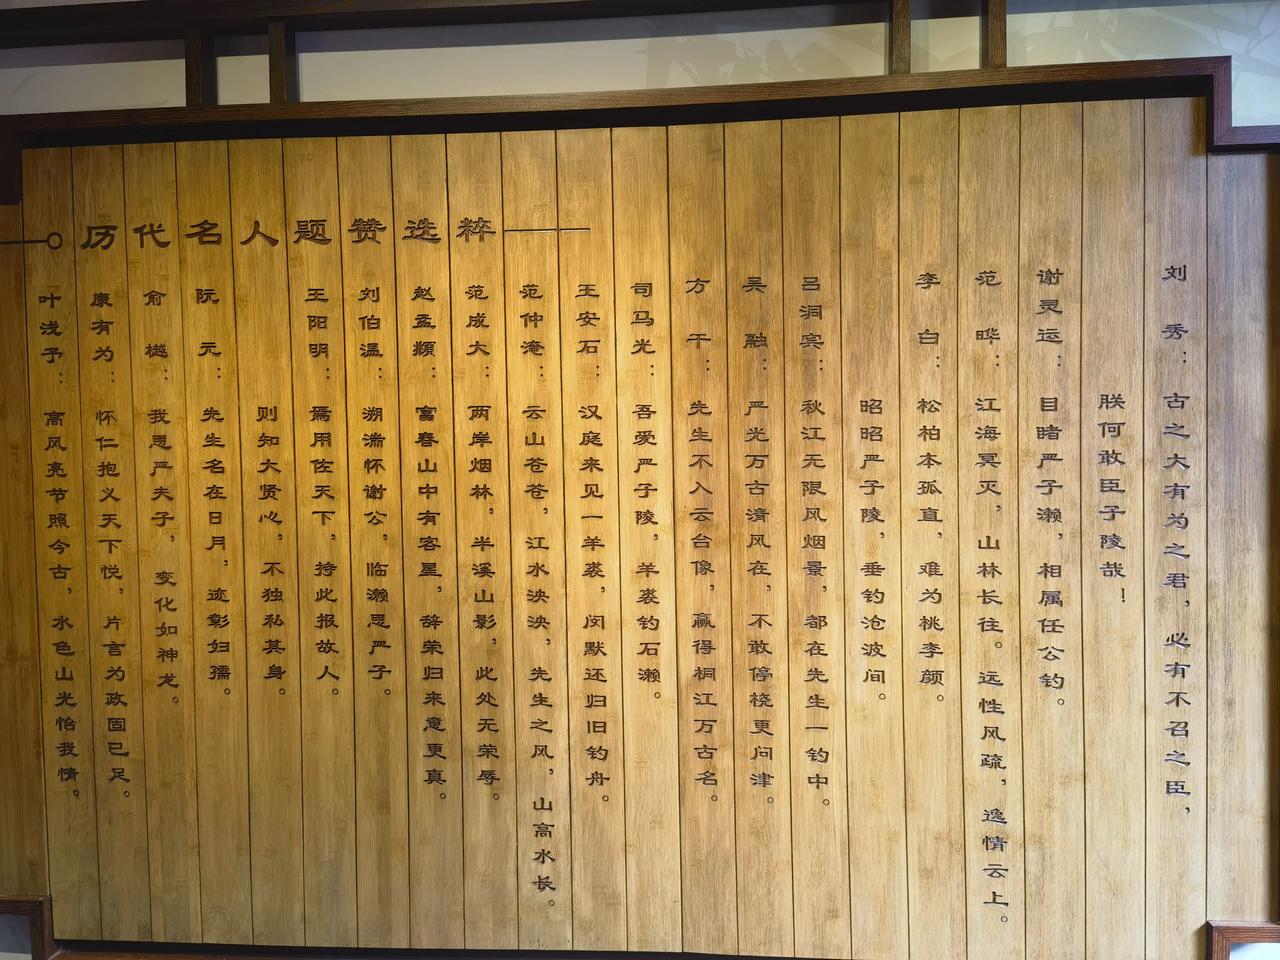 历代名人题赞选粹
刘秀：古之大有为之君，必有不召之臣，
朕何敢臣子陵哉！
谢灵运：目睹严子濑，相属任公钓。
范晔：江海冥灭，山林长往。远性风疏，逸情云上。
李白：松柏本孤直，难为桃李颜。
昭昭严子陵，垂钓沧波间。
吕洞宾：秋江无限风烟景，都在先生一钓中。
吴融：严光万古清风在，不敢停桡更问津。
方干：先生不入云台像，赢得桐江万古名。
司马光：吾爱严子陵，羊裘钓石濑。
王安石：汉庭来见一羊裘，闵默还归旧钓舟。
范仲淹：云山苍苍，江水泱泱，先生之风，山高水长。
范成大：两岸烟林，半溪山影，此处无荣辱。
赵孟頫：富春山中有客星，辞荣归来意更真。
刘伯温：溯湍怀谢公，临濑思严子。
王阳明：焉用佐天下，持此报故人。
则知大贤心，不独私其身。
阮元：先生名在日月，迹彰妇孺。
俞樾：我思严夫子，变化如神龙。
康有为：怀仁抱义天下悦，片言为政固已足。
叶浅予：高风亮节照今古，水色山光怡我情。